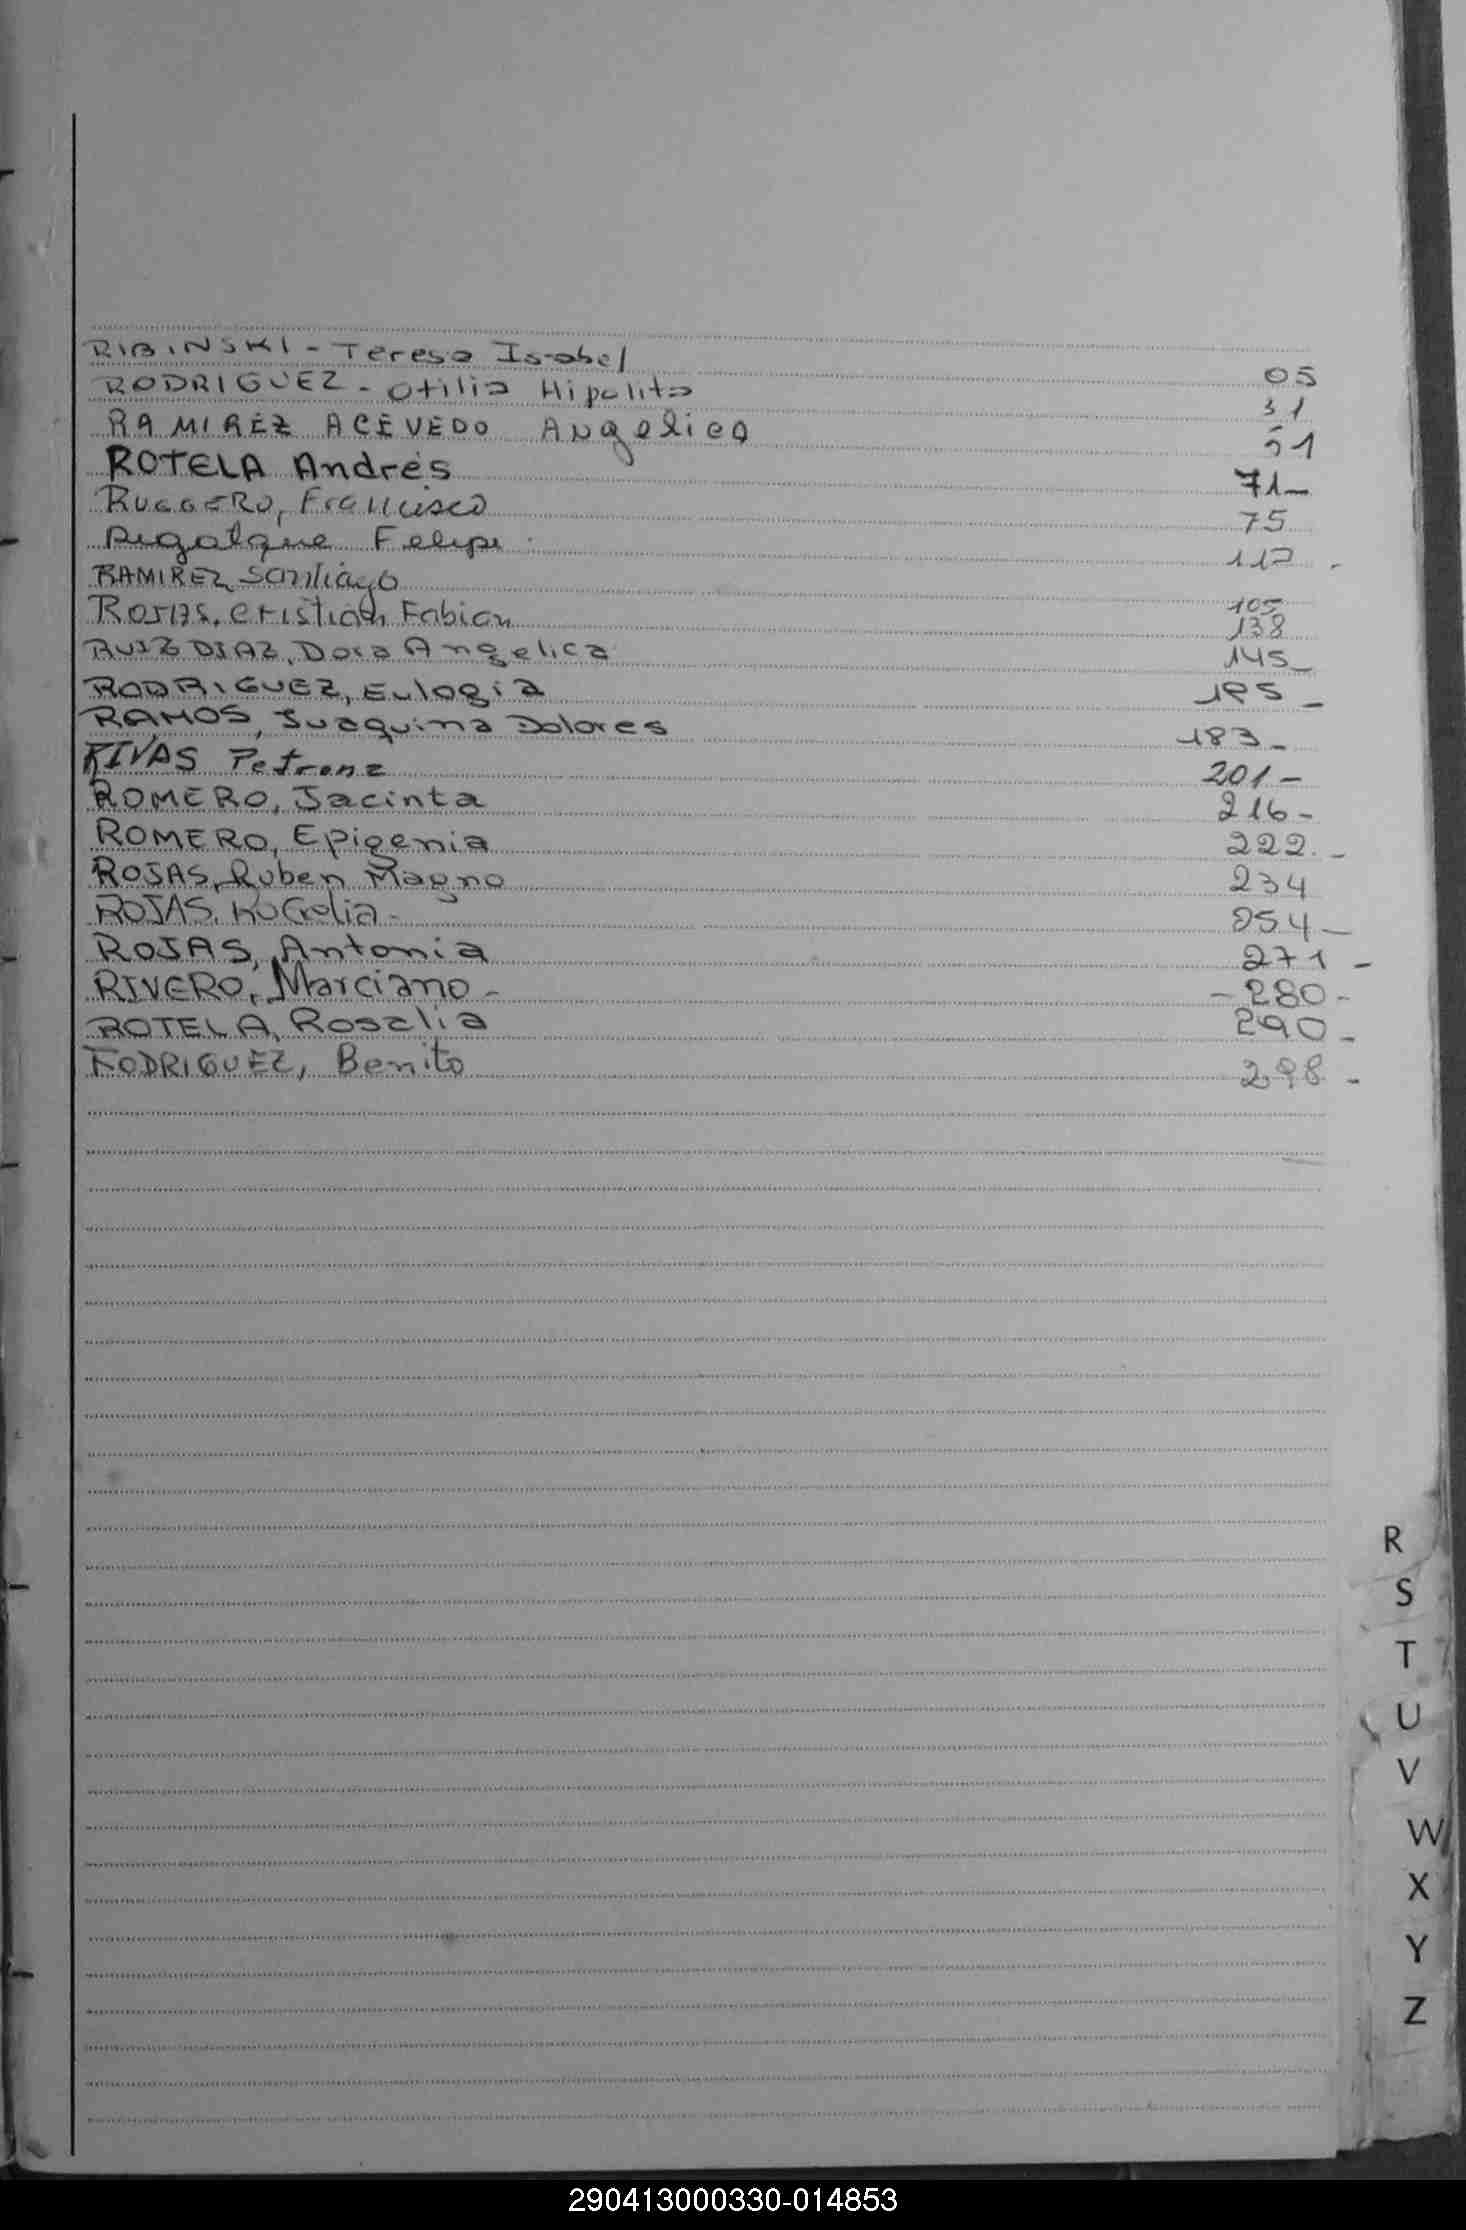 RIBINSKI - Teresa Isabel 05
RODRIGUEZ - Otilia Hipolita 31
RAMIREZ ACEVEDO Angelica 51
ROTELA Andrés 71-
RUGGERO, Francisco 75
Rigalque Felipe 117 -
RAMIREZ Santiago 105
ROJAS, Cristian Fabian 138
RUIZ DIAZ, Dora Angelica 145-
RODRIGUEZ, Eulogia -
RAMOS, Juaquina Dolores 183-
RIVAS Petrona 201-
ROMERO, Jacinta 216-
ROMERO, Epigenia 222-
ROJAS, Ruben Magno 234
ROJAS, 254-
ROJAS, Antonia 271 -
RIVERO, Marciano - - 280-
ROTELA, Rosalia 290-
RODRIGUEZ, Benito 298 -
R
S
T
U
V
W
X
Y
Z
290413000330-014853